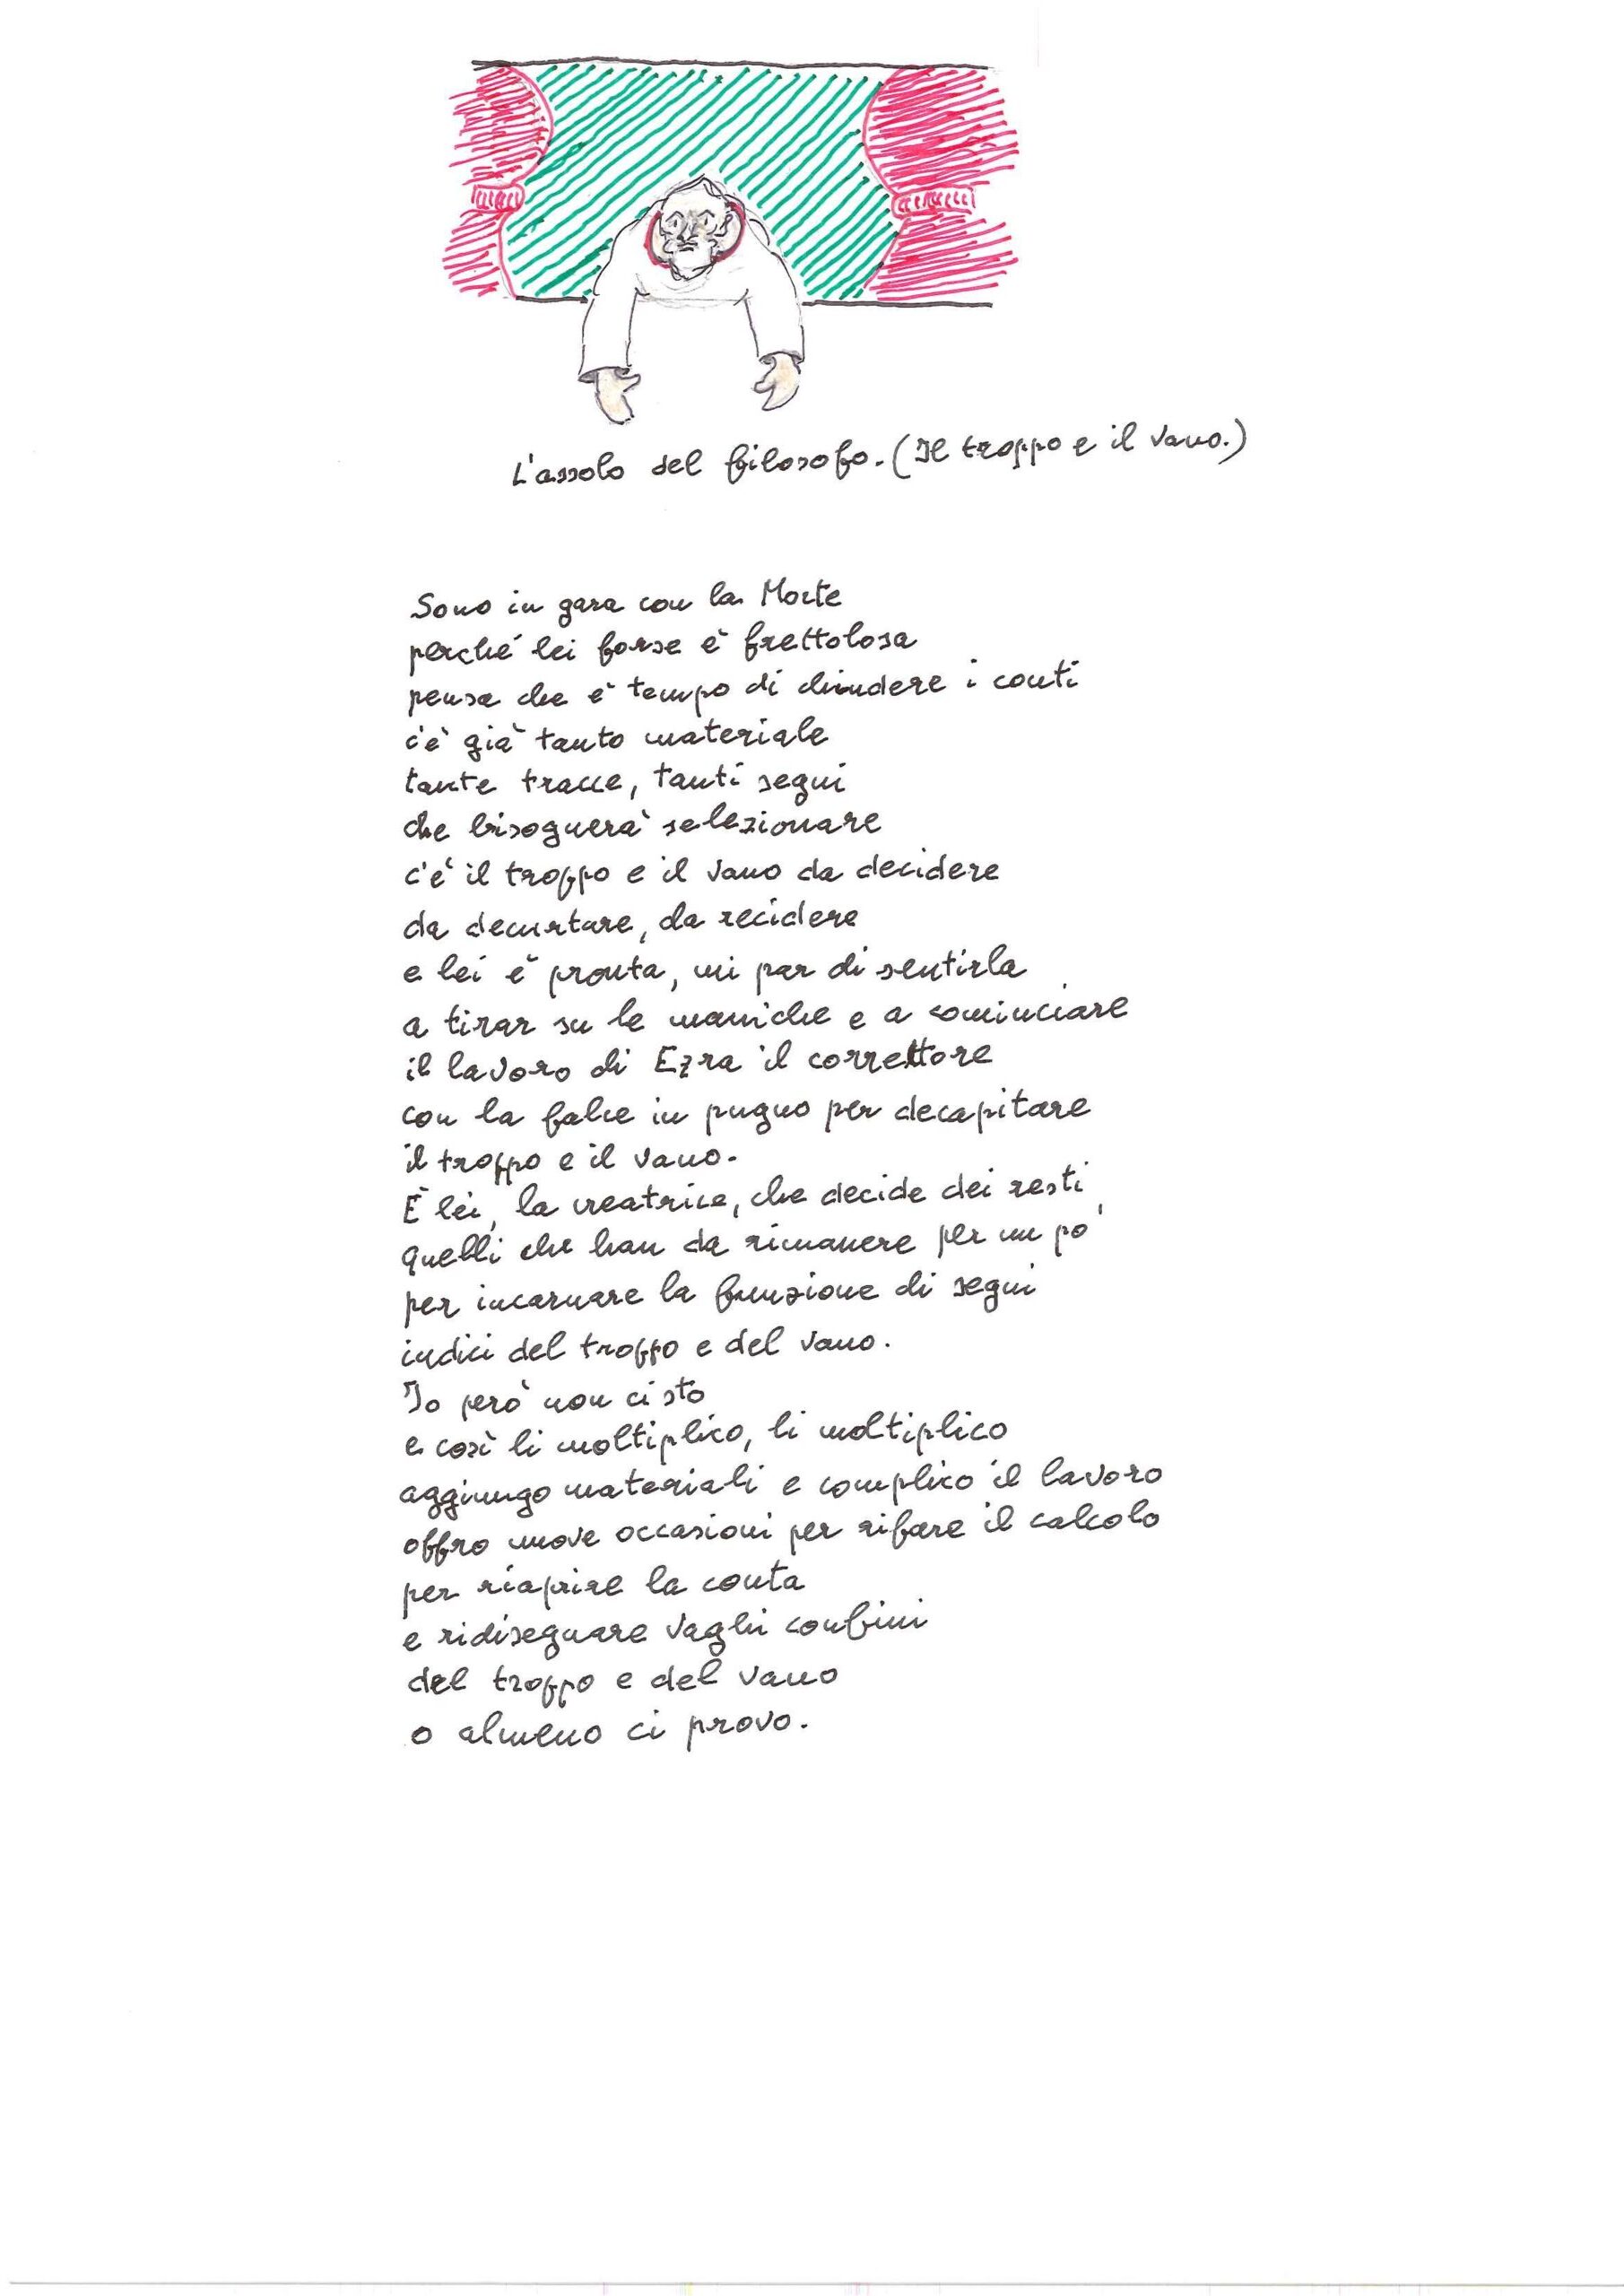 L'assolo del filosofo. (Il troppo e il vano.)
Sono in gara con la Morte
perché lei forse è frettolosa
pensa che è tempo di chiudere i conti
c'è già tanto materiale
tante tracce, tanti segni
che bisognerà selezionare
c'è il troppo e il vano da decidere
da decurtare, da recidere
e lei è pronta, mi par di sentirla
a tirar su le maniche e a cominciare
il lavoro di Ezra il correttore
con la falce in pugno per decapitare
il troppo e il vano.
È lei, la creatrice, che decide dei resti,
quelli che han da rimanere per un po'
per incarnare la funzione di segni
indici del troppo e del vano.
Io però non ci sto
e così li moltiplico, li moltiplico
aggiungo materiali e complico il lavoro
offro nuove occasioni per rifare il calcolo
per riaprire la conta
e ridisegnare vaghi confini
del troppo e del vano
o almeno ci provo.